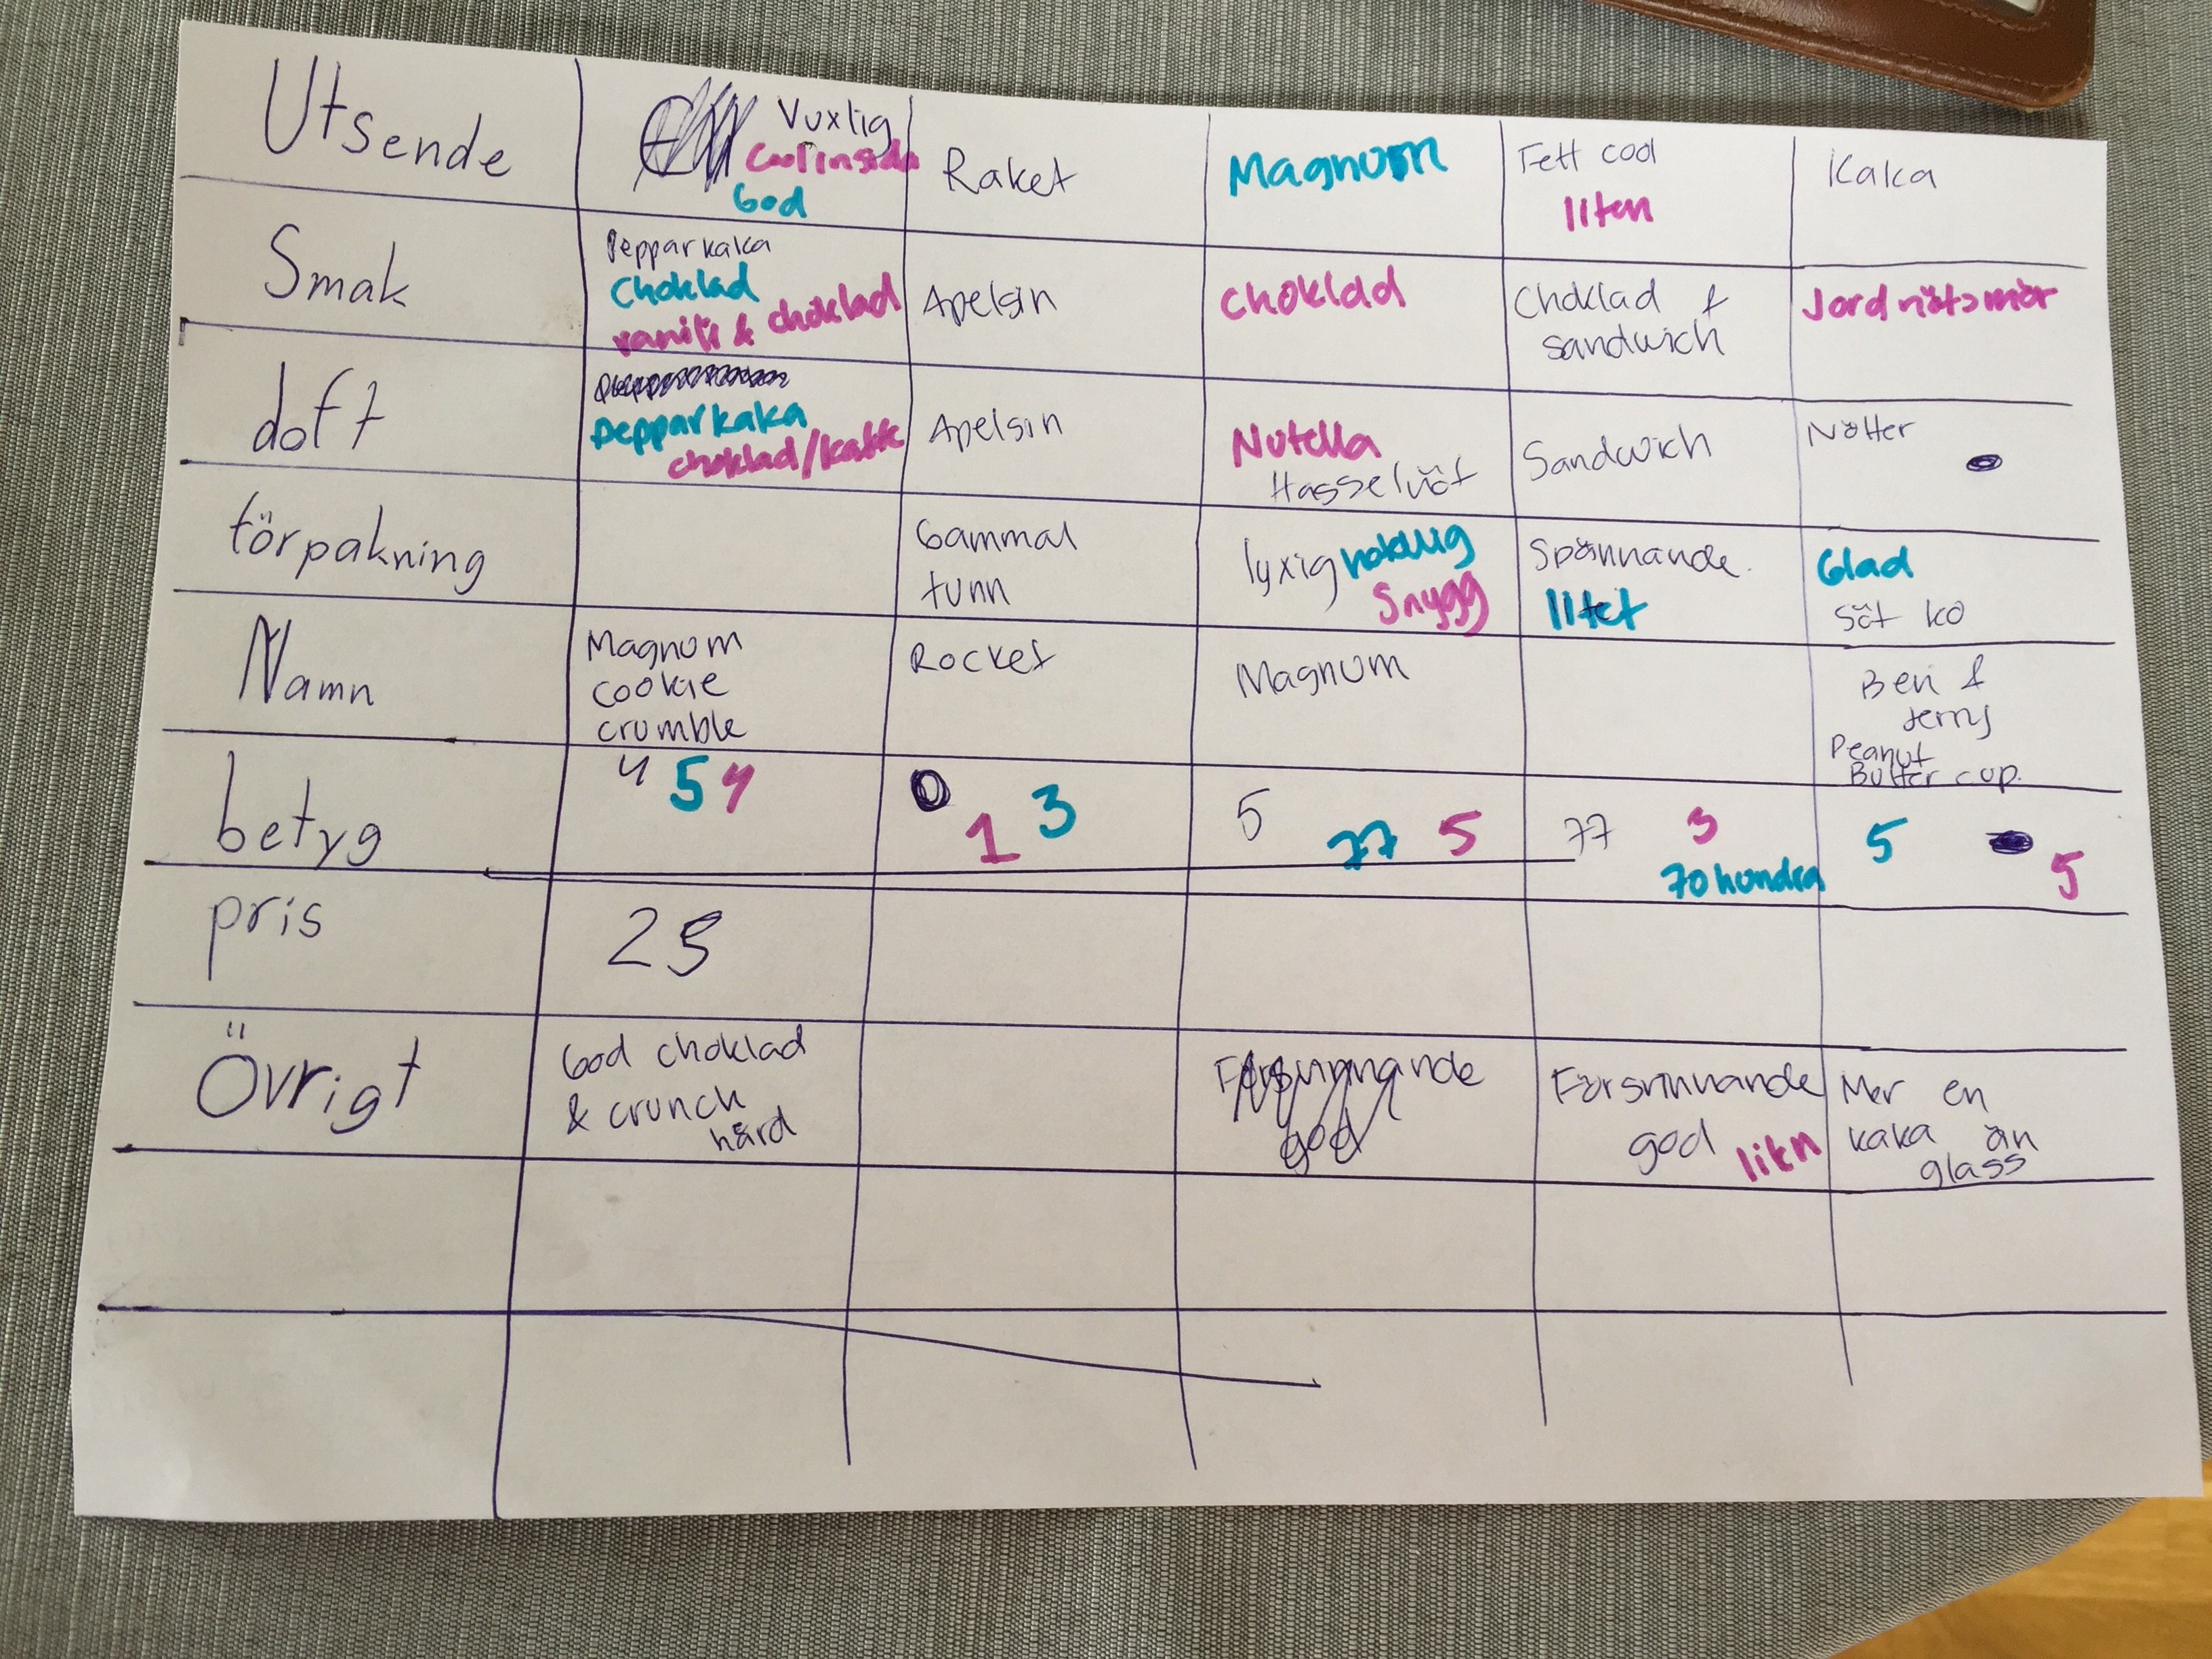 Utsende
Vuxlig
Coolinside
God
Raket
Magnum
Fett cool
liten
Kaka
Smak
Pepparkaka
Choklad
vanilj & choklad
Apelsin
Choklad
Choklad &
sandwich
Jordnötsmör
doft
Pepparkaka
choklad/kaffe
Apelsin
Nutella
Hasselnöt
Sandwich
Nötter
förpakning
Gammal
tunn
lyxig
Snygg
Spännande.
litet
Glad
Söt ko
Namn
Magnum
cookie
crumble
Rocket
Magnum
Ben &
Jerrys
Peanut
Butter cup.
betyg
4 5 4
0 1 3
5 77 5
77 3
70 hundra
5 5
pris
25
Övrigt
God choklad
& crunch
hård
Försvinnande
god
Försvinnande
god
Mer en
kaka än
glass